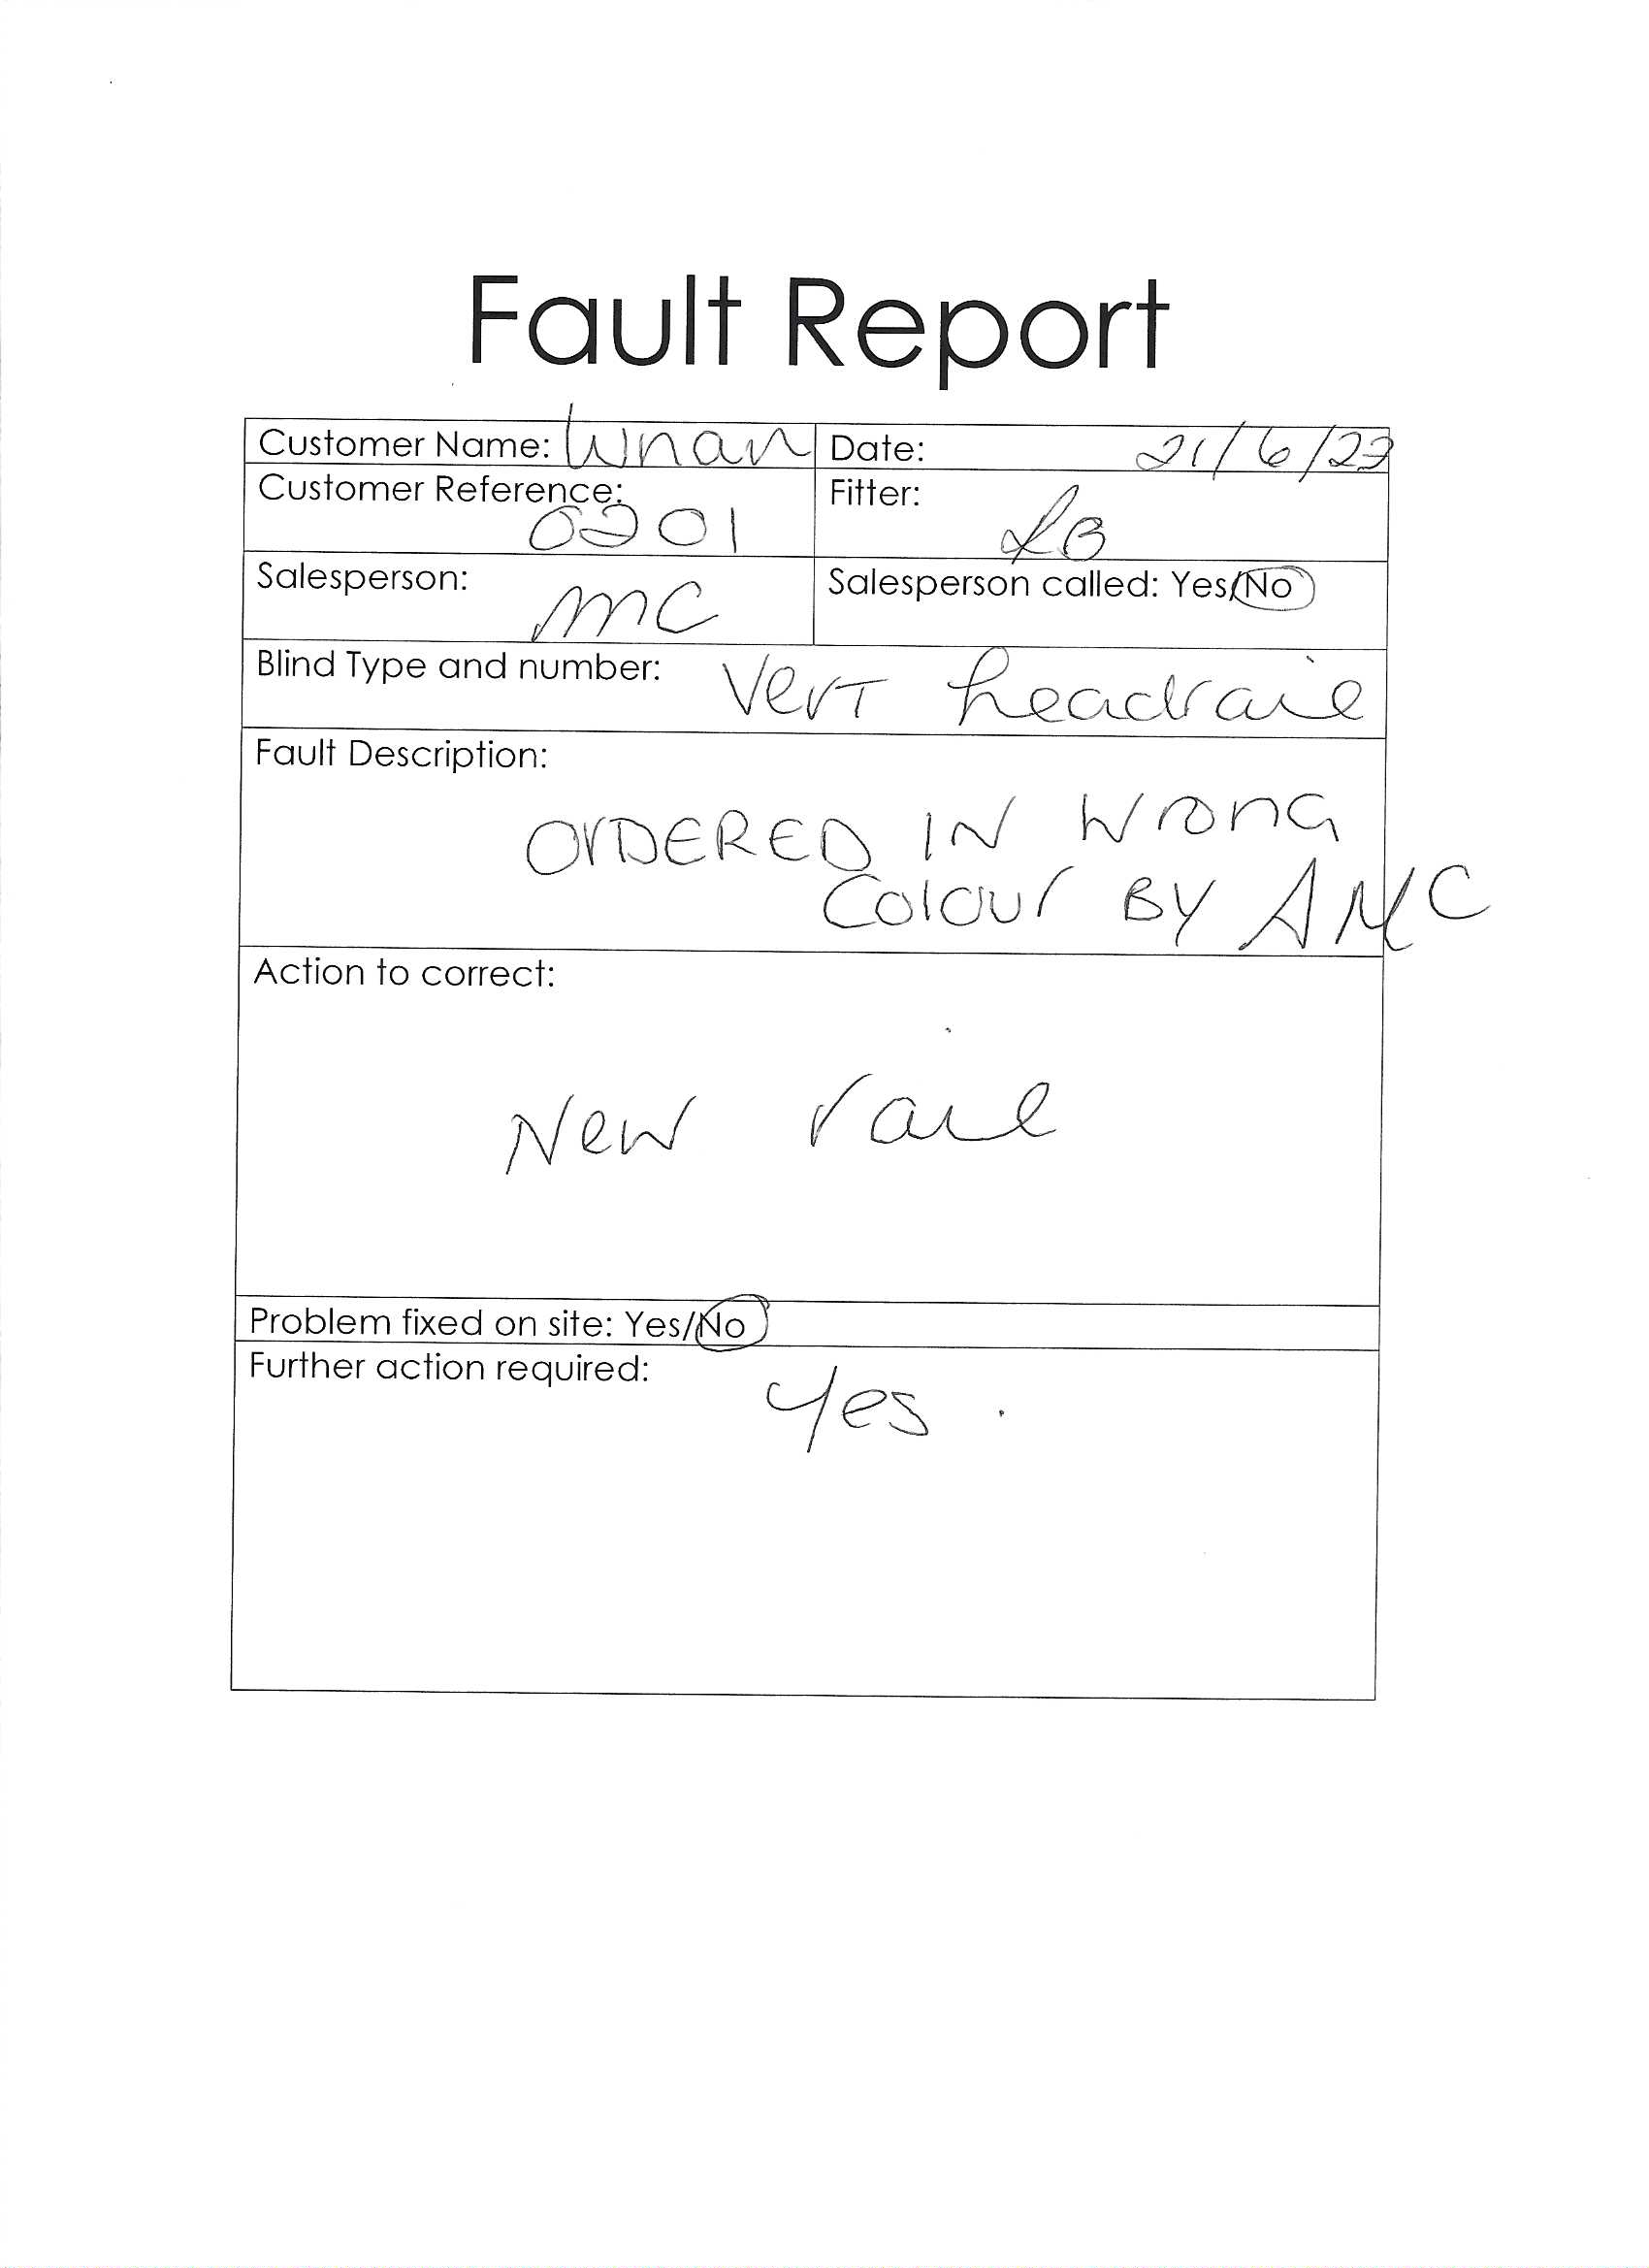 Fault Report
Customer Name: Whan Date: 21/6/23
Customer Reference: 0201 Fitter: LB
Salesperson: MC Salesperson called: Yes/No
Blind Type and number: Vert headrail
Fault Description:
ORDERED IN WRONG
COLOUR BY AMC
Action to correct:
New rail
Problem fixed on site: Yes/No
Further action required: Yes.